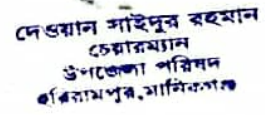 দেওয়ান সাইদুর রহমান
চেয়ারম্যান
উপজেলা পরিষদ
হরিরামপুর, মানিকগঞ্জ